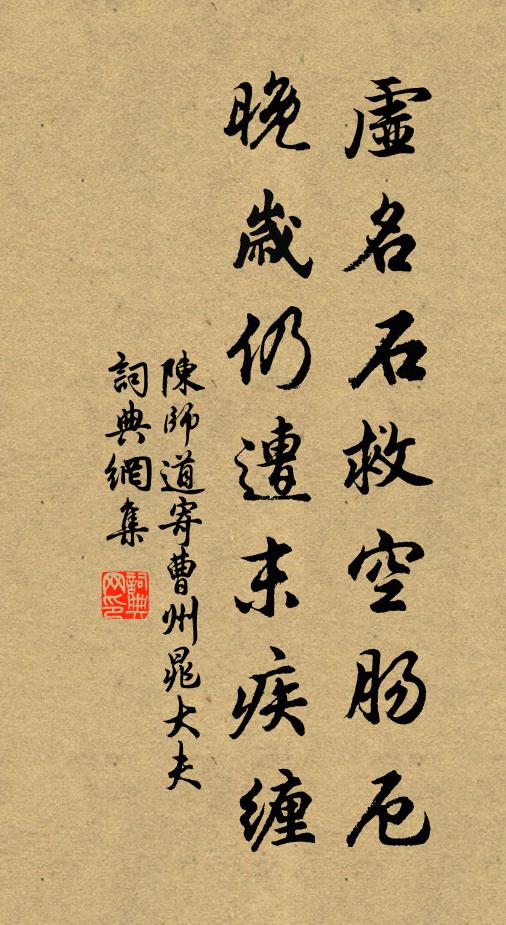 虛名石救空肠厄
晚歲仍遭末疾缠
陳師道寄曹州晁大夫
詞典網集
詞典网印